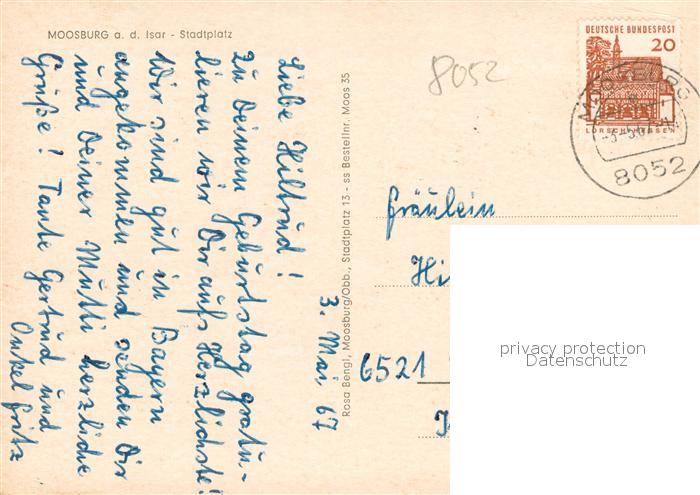 MOOSBURG a. d. Isar - Stadtplatz
Liebe Hiltrud!
Zu Deinem Geburtstag gratu-
lieren wir Dir aufs Herzlichste!
Wir sind gut in Bayern
angekommen und senden Dir
und Deiner Mutti herzliche
Grüße! Tante Gertrud und
Onkel Fritz
3. Mai, 67
Rosa Bengl, Moosburg/Obb., Stadtplatz 13 - ss Bestellnr. Moos 35
8052
DEUTSCHE BUNDESPOST
20
LORSCH/HESSEN
MOOSBURG
8052
Fräulein
Hi
6521
privacy protection
Datenschutz